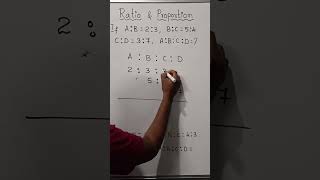 Ratio & Proportion
If A:B=2:3, B:C=5:4
C:D=3:7, A:B:C:D=?
A : B : C : D
2 : 3 : 3
5 :
7
:C=4:3
A:B:C:D=